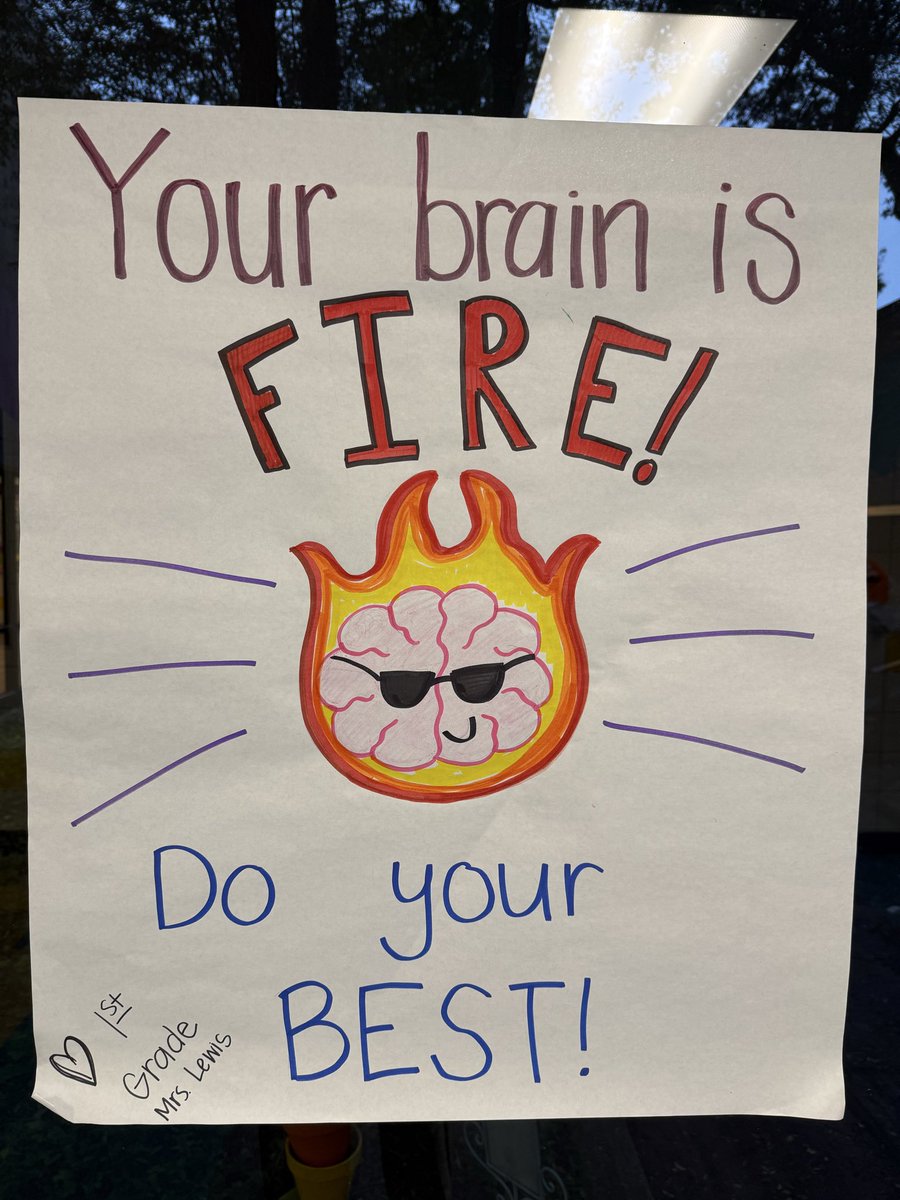 Your brain is
FIRE!
Do your
BEST!
♡ 1st
Grade
Mrs. Lewis